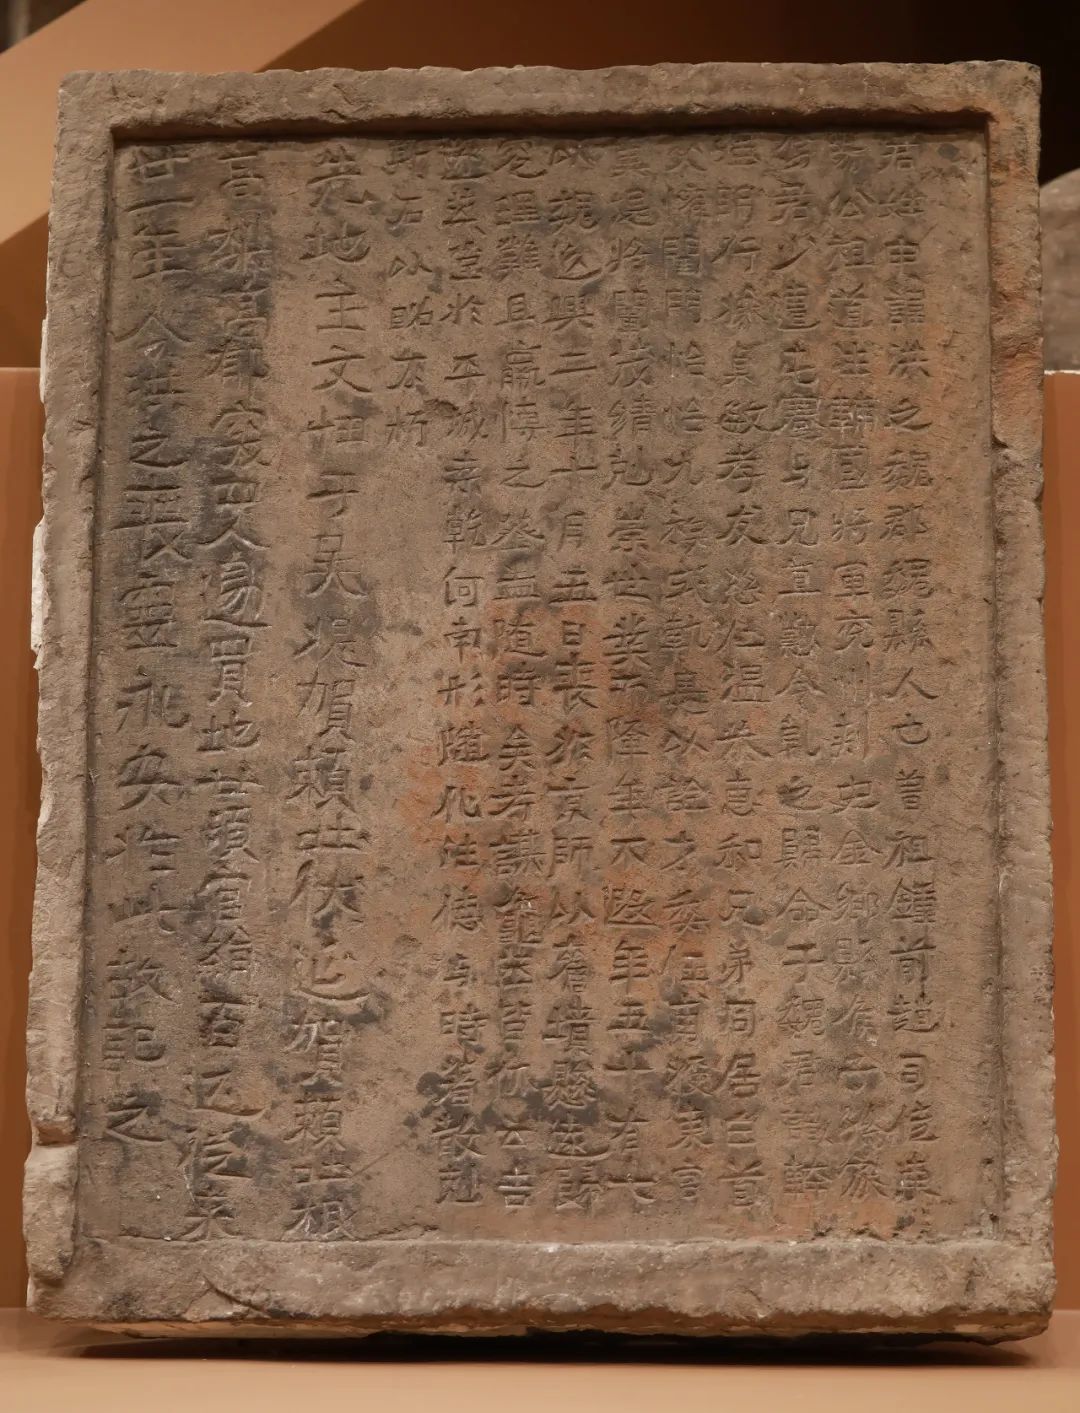 君姓申諱洪之魏郡魏縣人也曾祖鍾前趙司徒東
陽公祖道生輔國將軍兗州刺史金鄉縣侯子孫家
焉君少遭屯蹇与兄直懃令乾之歸命于魏君識幹
強明行操貞敏孝友慈仁溫恭惠和兄弟同居白首
交歡閨門怡怡九族式軌是以詮才委任甫授東宮
莫堤將闡茂績剋崇世業而降年不遐年五十有七
以魏延興二年十月五日喪於京師以舊墳懸遠歸
窆理難且嬴博之葬盖随時矣考謀龜筮皆休云吉
遂築堂於平城桑乾河南形隨化往德与時著敢剋
斯石以昭不朽
先地主文忸于吳提賀賴吐伏延賀賴吐根
高梨高郁突四人邊買地廿頃官絹百匹從來
廿一年今洪之喪靈永安於此故記之